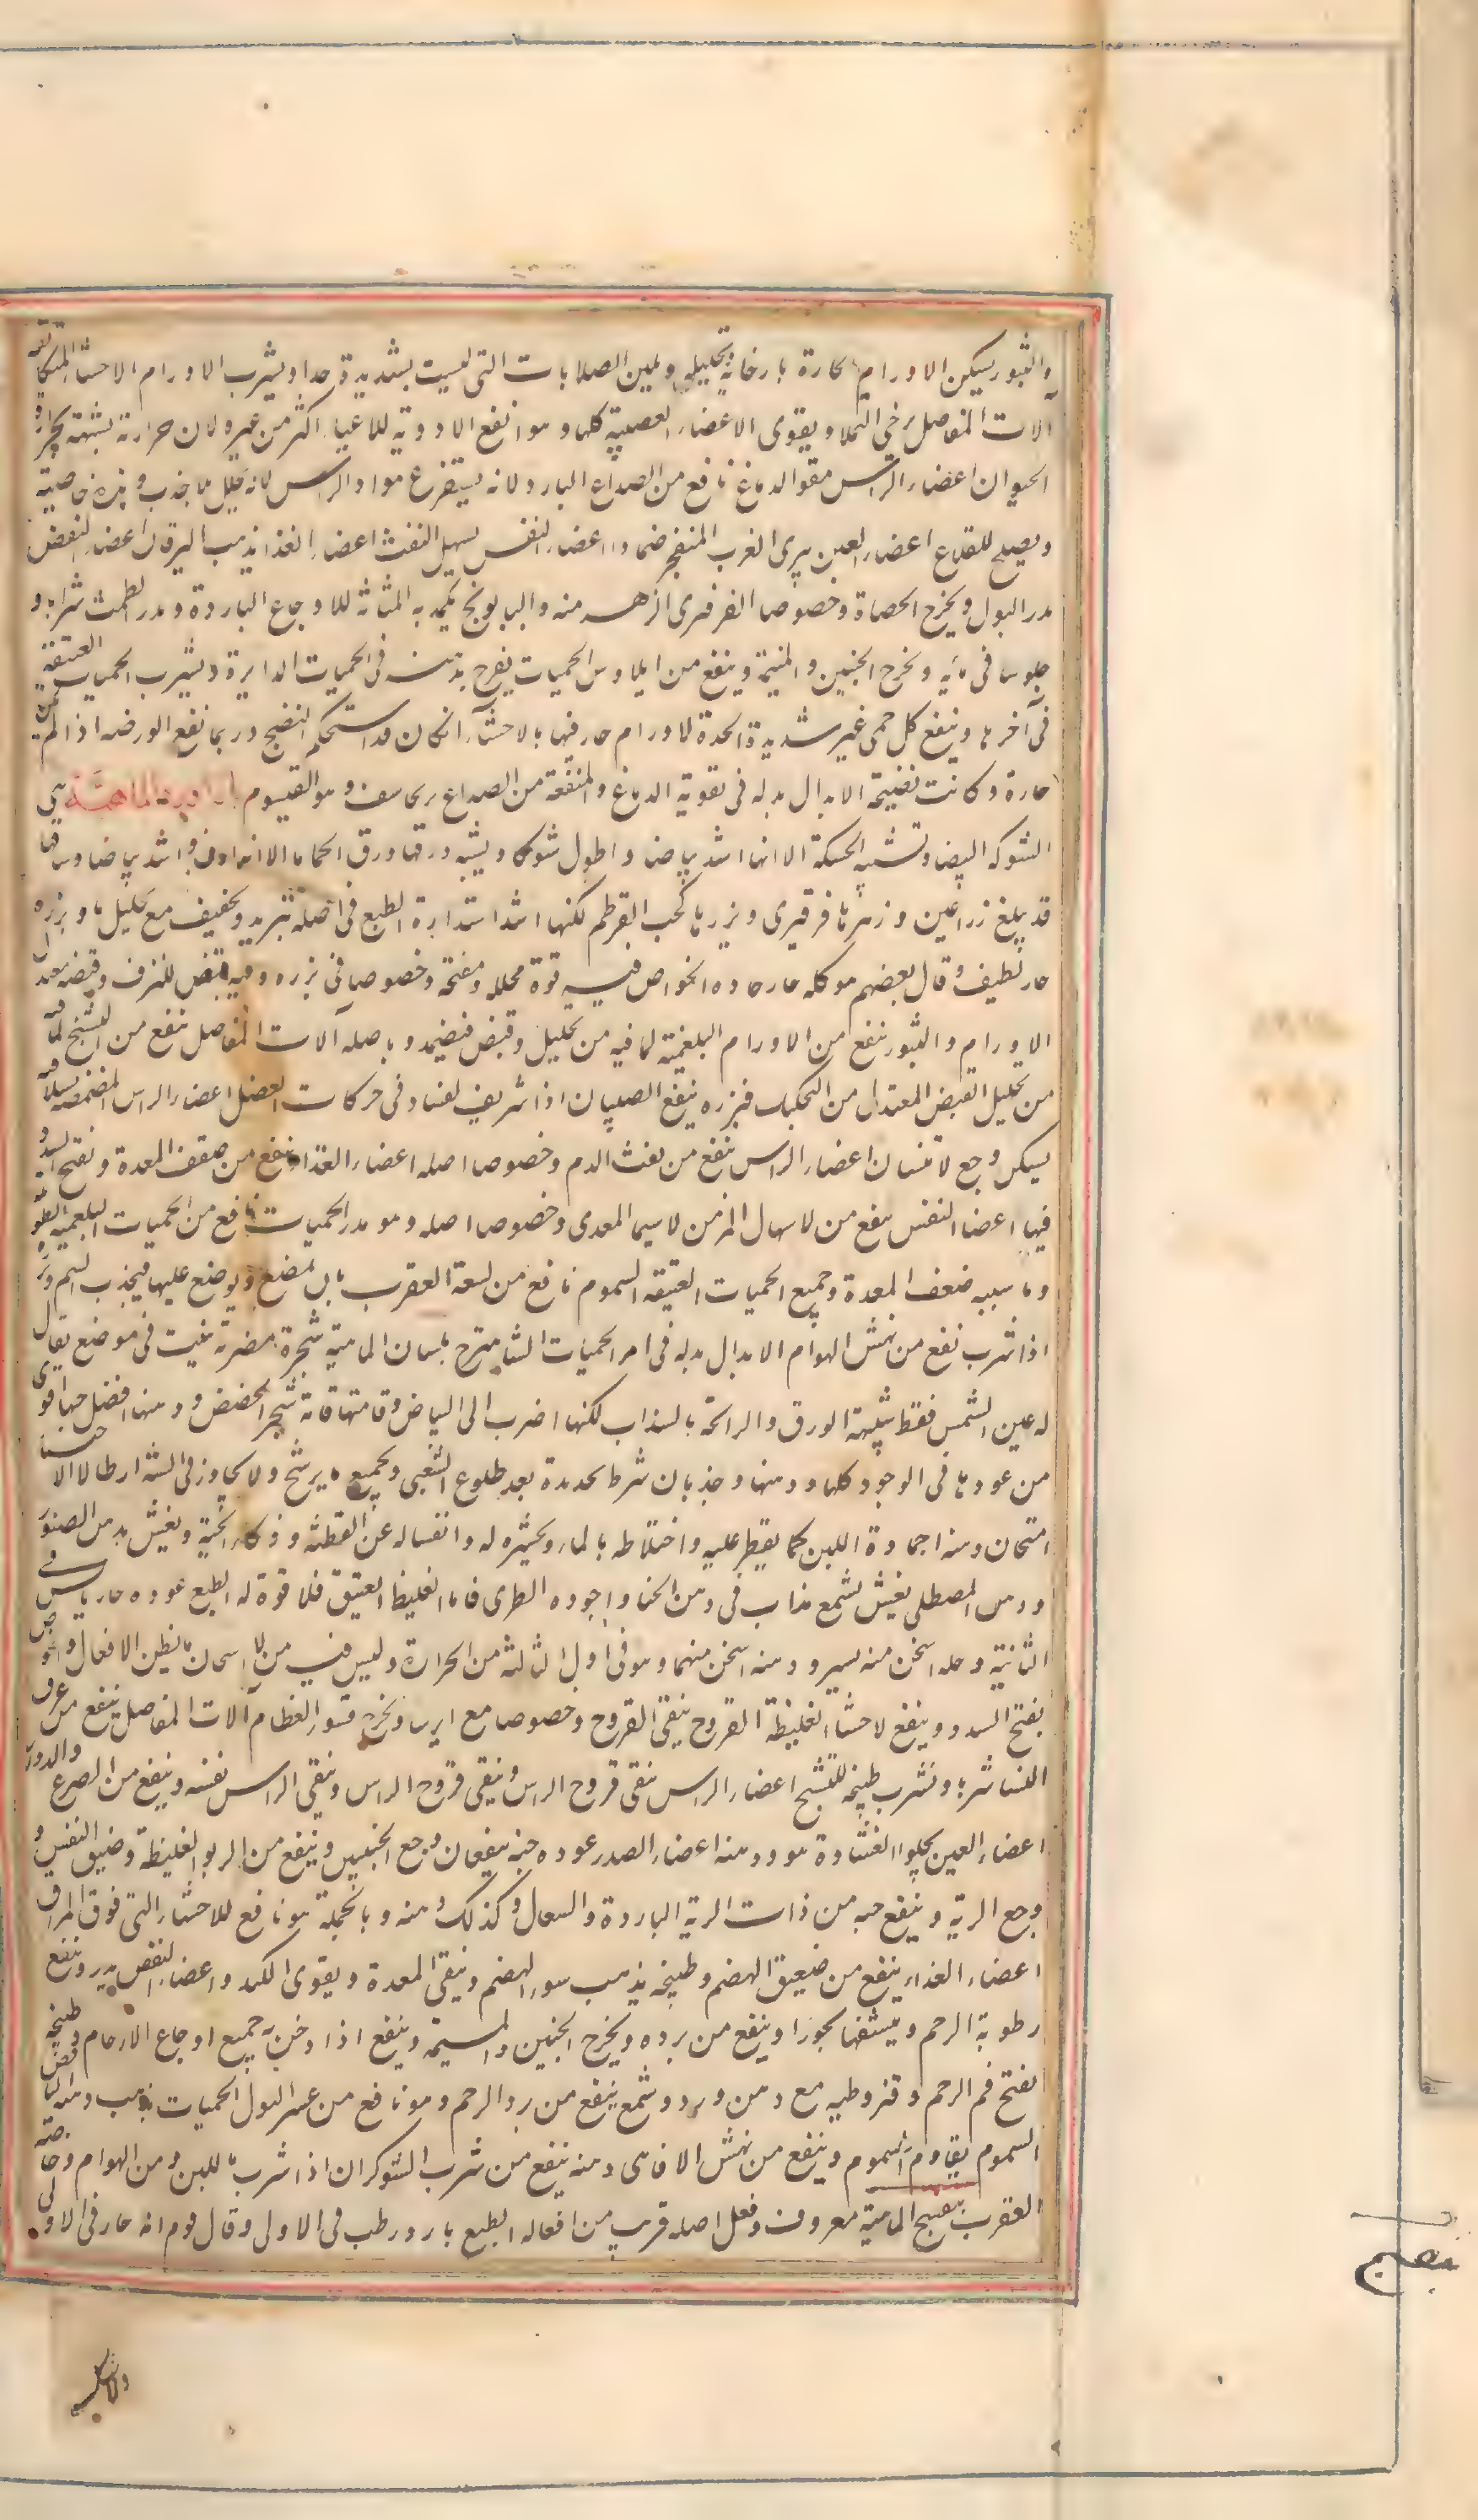 والبثور يسكن الاورام الحارة بارخائه وتحليله ويلين الصلابات التى ليست بشديدة جدا ويشرب الاورام الاحشاء المتكاثفة
آلات المفاصل يرخى التمدد ويقوى الاعضاء العصبية كلها وهو انفع الادوية للاعياء اكثر من غيره لان حرارته شبيهة بحرارة
الحيوان اعضاء الراس مقو الدماغ نافع من الصداع البارد ولانه يستفرغ مواد الراس لانه يحلل بلا جذب وهذه خاصيته
ويصلح للقلاع اعضاء العين يبرى الغرب المنفجر ضمادا اعضاء النفس يسهل النفث اعضاء الغذا يذهب اليرقان اعضاء النفض
يدر البول ويخرج الحصاة وخصوصا الفرفرى الزهر منه والبابونج يكمد به المثانة للاوجاع الباردة ويدر الطمث شرابا و
جلوسا فى مائه ويخرج الجنين والمشيمة وينفع من ايلاوس الحميات يمرخ بدهنه فى الحميات الدايرة ويشرب الحميات العتيقة
فى آخرها وينفع كل حمى غير شديدة الحدة لا ورام حار فيها بالاحشاء ان كان قد استحكم النضج وربما نفع الورم اذا لم يكن
حارة وكانت نضيجة الابدال بدله فى تقوية الدماغ والمنفعة من الصداع برنجاسف وهو القيسوم هى
الشوكه البيضا وتشبه الحسكة الا انها اشد بياضا واطول شوكا ويشبه ورقها ورق الحماما الا انه ادق واشد بياضا وساقها
قد يبلغ ذراعين و زهرها فرفيرى و بزرها كحب القرطم لكنها اشد استدارة الطبع فى اصله تبريد وتجفيف مع تحليل ما وبزره
حار لطيف وقال بعضهم هو كله حار حاده الخواص فيه قوة محلله ومفتحة وخصوصا فى بزره وفيه قبض للنزف وقبضه معتدل
الاورام والبثور ينفع من الاورام البلغمية لما فيه من تحليل وقبض فيضمد وباصله آلات المفاصل ينفع من التشنج لما فيه
من تحليل القبض المعتدل من التحليل فبزره ينفع الصبيان اذا شربوه لفساد فى حركات العضل اعضاء الراس المضمضة بسلاقته
يسكن وجع الاسنان اعضاء الراس ينفع من نفث الدم وخصوصا اصله اعضاء الغذا ينفع من ضعف المعدة ويفتح السدد
فيها اعضا النفس ينفع من الاسهال المزمن لا سيما المعدى وخصوصا اصله وهو مدر الحميات نافع من الحميات البلغمية الطويلة
وما سببه ضعف المعدة وجميع الحميات العتيقه السموم نافع من لسعة العقرب بان يمضغ ويوضع عليها فيجذب السم وبزره
اذا شرب نفع من نهش الهوام الابدال بدله فى امر الحميات الشاهترج بلسان الماهية شجرة مصرية تنبت فى موضع يقال
له عين الشمس فقط شبيهة الورق والرائحة بالسذاب لكنها اضرب الى البياض وقامتها قامة شجر الحضض ودهنها افضل حبها اقوى
من عودها فى الوجود كلها ودهنها وجذبان شرط بحديدة بعد طلوع الشعرى ويجمع ما يرشح ولا يجاوز فى السنة ارطالا الا
امتحان دهنه اجماده اللبن كما يقطر عليه واختلاطه بالماء وتخثيره له وانغساله عن القطنة ويغش بدهن الصنوبر
ودهن المصطكى يغش بشمع مذاب فى دهن الحنا واجوده الطرى فاما الغليظ العتيق فلا قوة له الطبع عوده حار يابس فى
الثانية وحبه اسخن منه بيسير ودهنه اسخن منهما وهو فى اول الثالثة من الحرارة وليس فيه من الاسخان ما يظن الافعال والخواص
يفتح السدد وينفع الاحشاء الغليظة القروح ينقى القروح وخصوصا مع ايرسا ويخرج قشور العظام آلات المفاصل ينفع من عرق
النسا شربا ويشرب طبيخه للتشنج اعضاء الراس ينقى قروح الراس وينقى قروح الراس وينقى الراس نفسه وينفع من الصرع والدوار
اعضاء العين يجلو الغشاوة هو ودهنه اعضاء الصدر عوده حبه ينفعان وجع الجنبين وينفع من الربو الغليظة وضيق النفس و
وجع الرية وينفع حبه من ذات الرية الباردة والسعال وكذلك دهنه وبالجملة هو نافع للاحشاء التى فوق المراق
اعضاء الغذاء ينفع من ضعيف الهضم وطبيخه يذهب سوء الهضم وينقى المعدة ويقوى الكبد واعضاء النفض يدر وينفع
رطوبة الرحم وينشفها بخورا وينفع من برده ويخرج الجنين والمشيمة وينفع اذا دخن به جميع اوجاع الارحام وطبيخه
يفتح فم الرحم وقيروطيه مع دهن ورد وشمع ينفع من برد الرحم وهو نافع من عسر البول الحميات يذهب دهنه النافض
السموم يقاوم السموم وينفع من نهش الافاعى ودهنه ينفع من شرب الشوكران اذا شرب باللبن ومن الهوام وخاصة
العقرب بنفسج الماهية معروف وفعل اصله قريب من افعاله الطبع بارد رطب فى الاولى وقال قوم انه حار فى الاولى
بنفسج